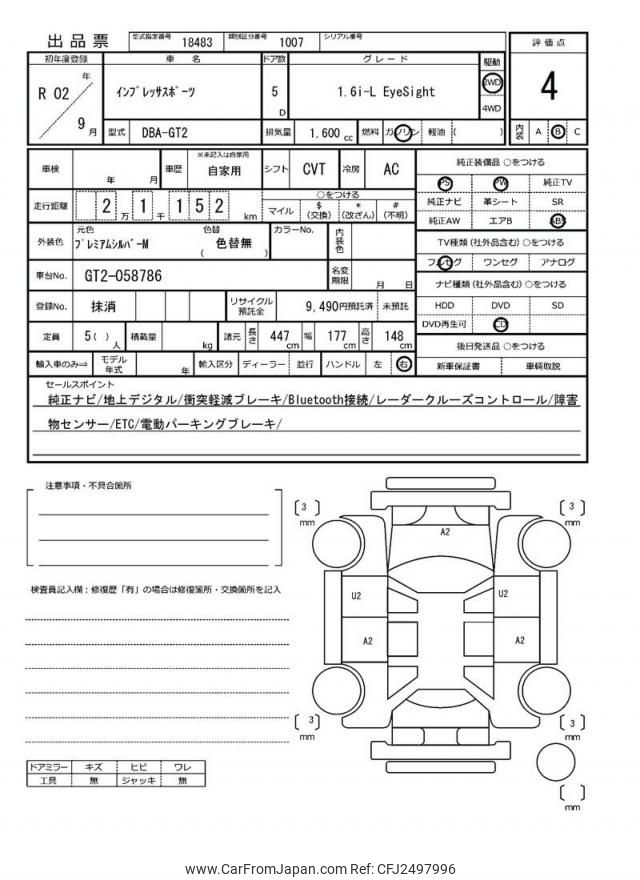 出品票 型式指定番号 18483 類別区分番号 1007 シリアル番号
初年度登録 車名 ドア数 グレード 駆動 評価点
R 02 年 9 月 ｲﾝﾌﾟﾚｯｻｽﾎﾟｰﾂ 5 D 1.6i-L EyeSight 2WD 4WD 4
型式 DBA-GT2 排気量 1,600 cc 燃料 ガソリン 軽油 ( ) 内装 A B C
車検 年 月 車歴 ※未記入は自家用 自家用 シフト CVT 冷房 AC 純正装備品 ○をつける
PS PW 純正TV
走行距離 2 万 1 千 1 5 2 km ○をつける マイル $ (交換) * (改ざん) # (不明) 純正ナビ 革シート SR
純正AW エアB ABS
外装色 元色 ﾌﾟﾚﾐｱﾑｼﾙﾊﾞｰM 色替 ( 色替無 ) カラーNo. 内装色 TV種類 (社外品含む) ○をつける
フルセグ ワンセグ アナログ
車台No. GT2-058786 名変期限 月 日 ナビ種類 (社外品含む) ○をつける
登録No. 抹消 リサイクル預託金 9,490円預託済 未預託 HDD DVD SD
DVD再生可 CD
定員 5 ( ) 人 積載量 kg 諸元 長さ 447 cm 幅 177 cm 高さ 148 cm 後日発送品 ○をつける
輸入車のみ⇒ モデル年式 年 輸入区分 ディーラー 並行 ハンドル 左 右 新車保証書 車輌取説
セールスポイント
純正ナビ/地上デジタル/衝突軽減ブレーキ/Bluetooth接続/レーダークルーズコントロール/障害
物センサー/ETC/電動パーキングブレーキ/
注意事項・不具合箇所
検査員記入欄：修復歴「有」の場合は修復箇所・交換箇所を記入
ドアミラー キズ ヒビ ワレ
工具 無 ジャッキ 無
[ 3 ] mm [ 3 ] mm
A2
U2 U2
A2 A2
[ 3 ] mm [ 3 ] mm
[ ] mm
www.CarFromJapan.com Ref: CFJ2497996